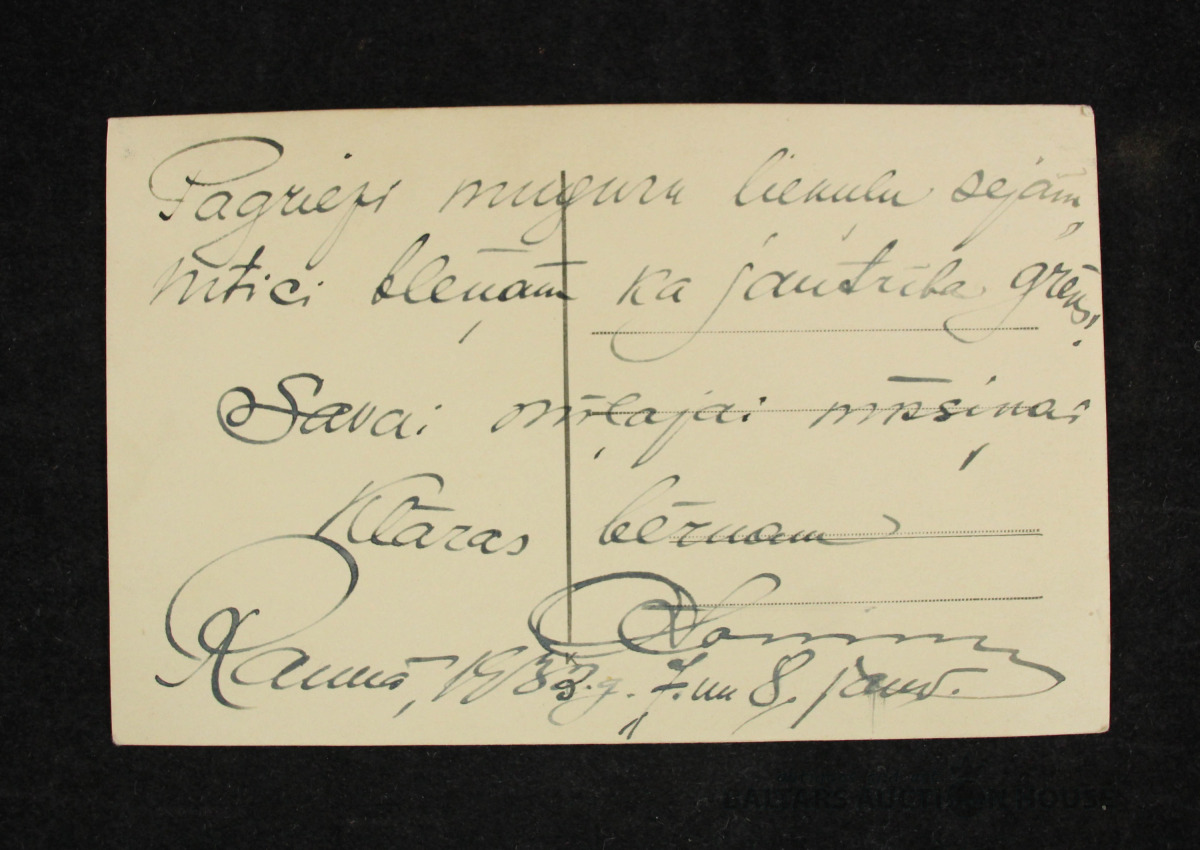 Pagriezi muguru liekuļu sejām,
nītici blēņām ka jautrība grēks!
Savai mīļajai māsiņai
Klāras bērnam
Raunā, 1933.g. 7. un 8. janv.
BALTARS AUCTION HOUSE